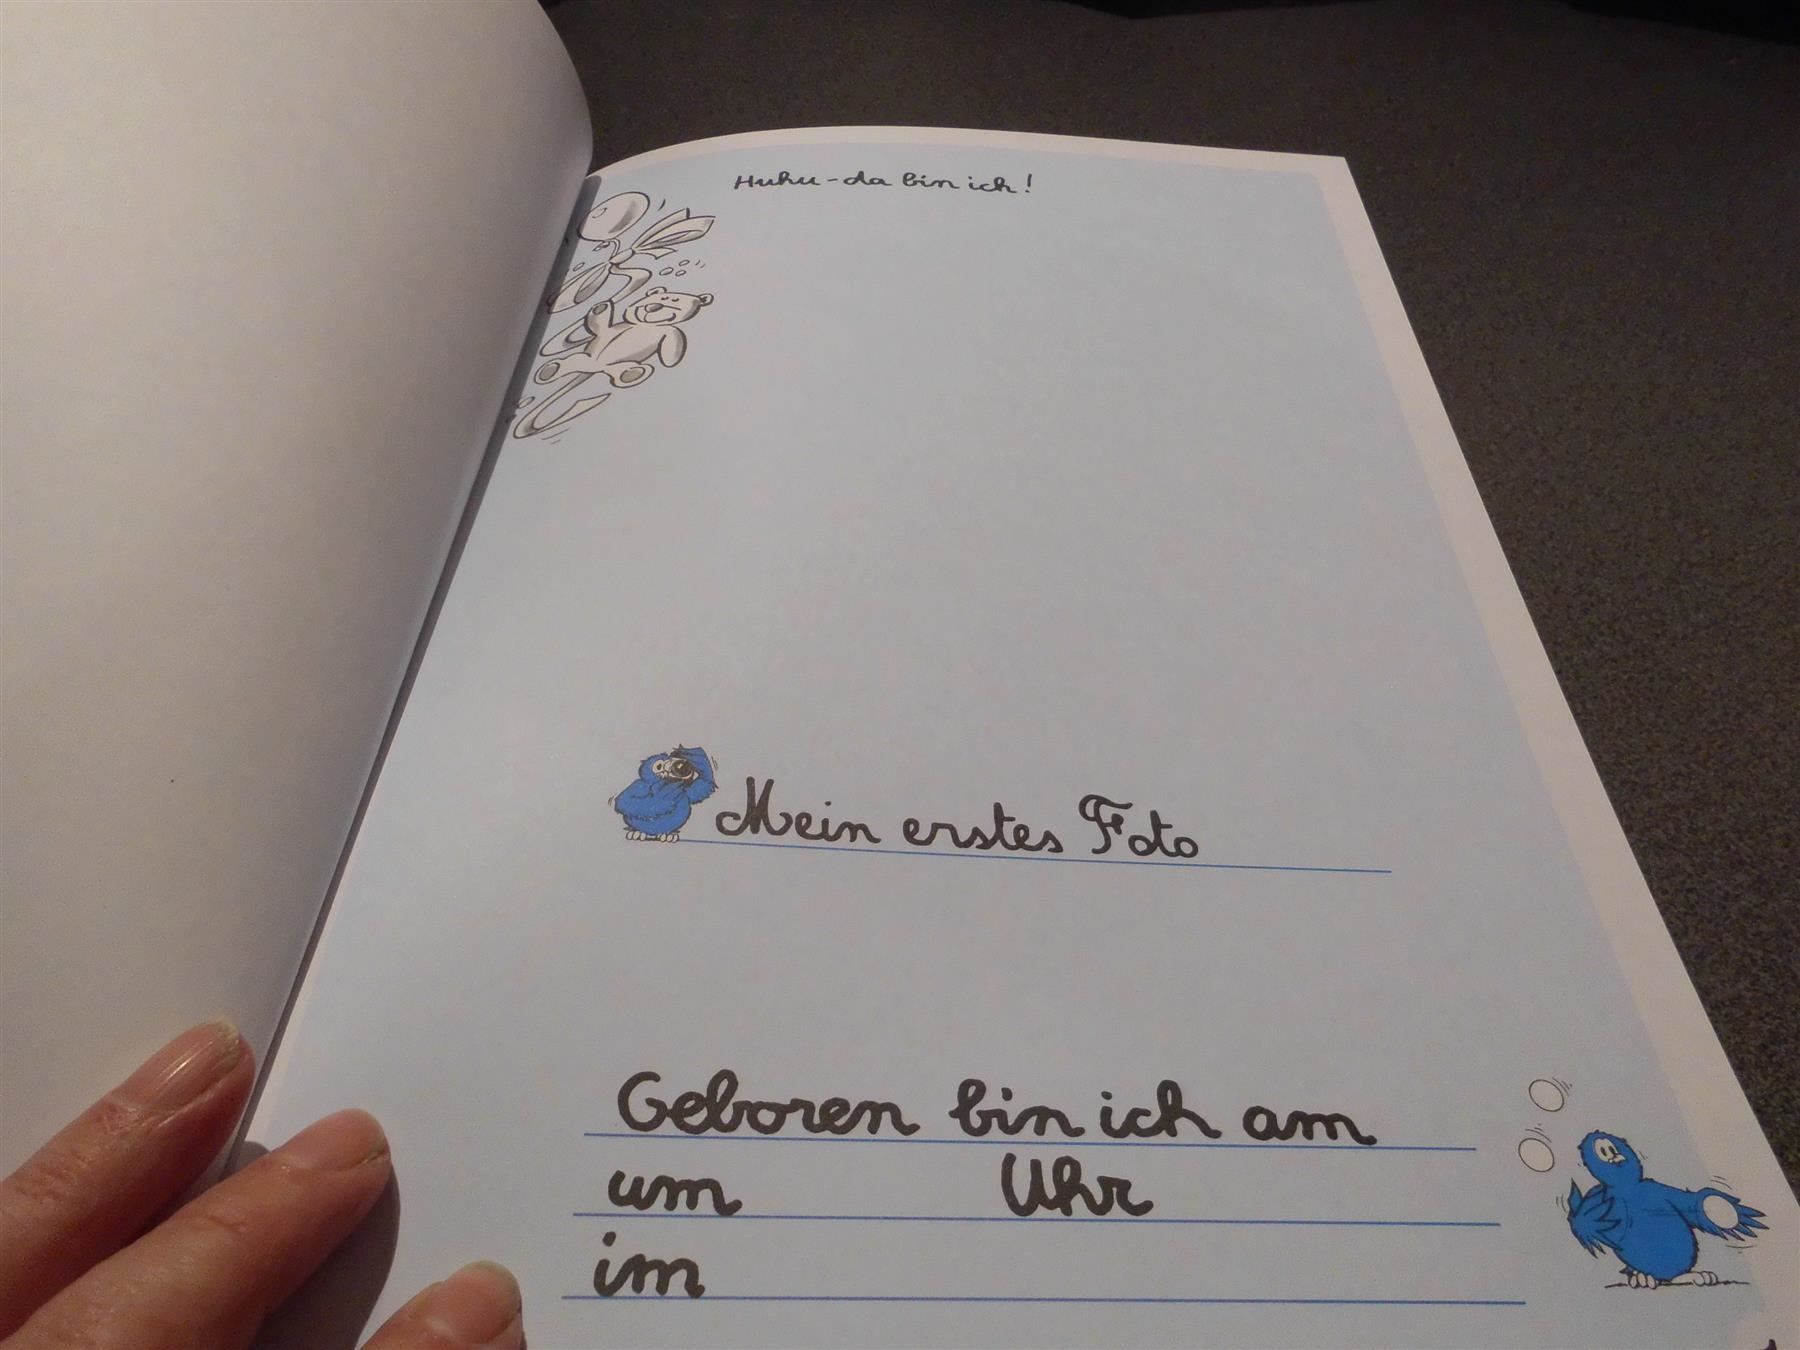 Huhu - da bin ich!
Mein erstes Foto
Geboren bin ich am
um Uhr
im